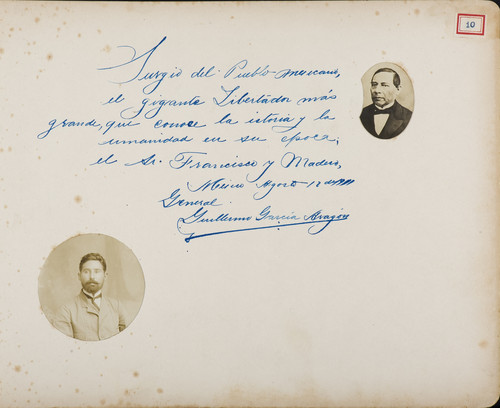 10
Surgió del Pueblo mexicano,
el gigante Libertador más
grande, que conose la istoria y la
umanidad en su epoca;
el Sr. Francisco y Madero,
México Agosto 12 de 1911
General.
Guillermo García Aragón